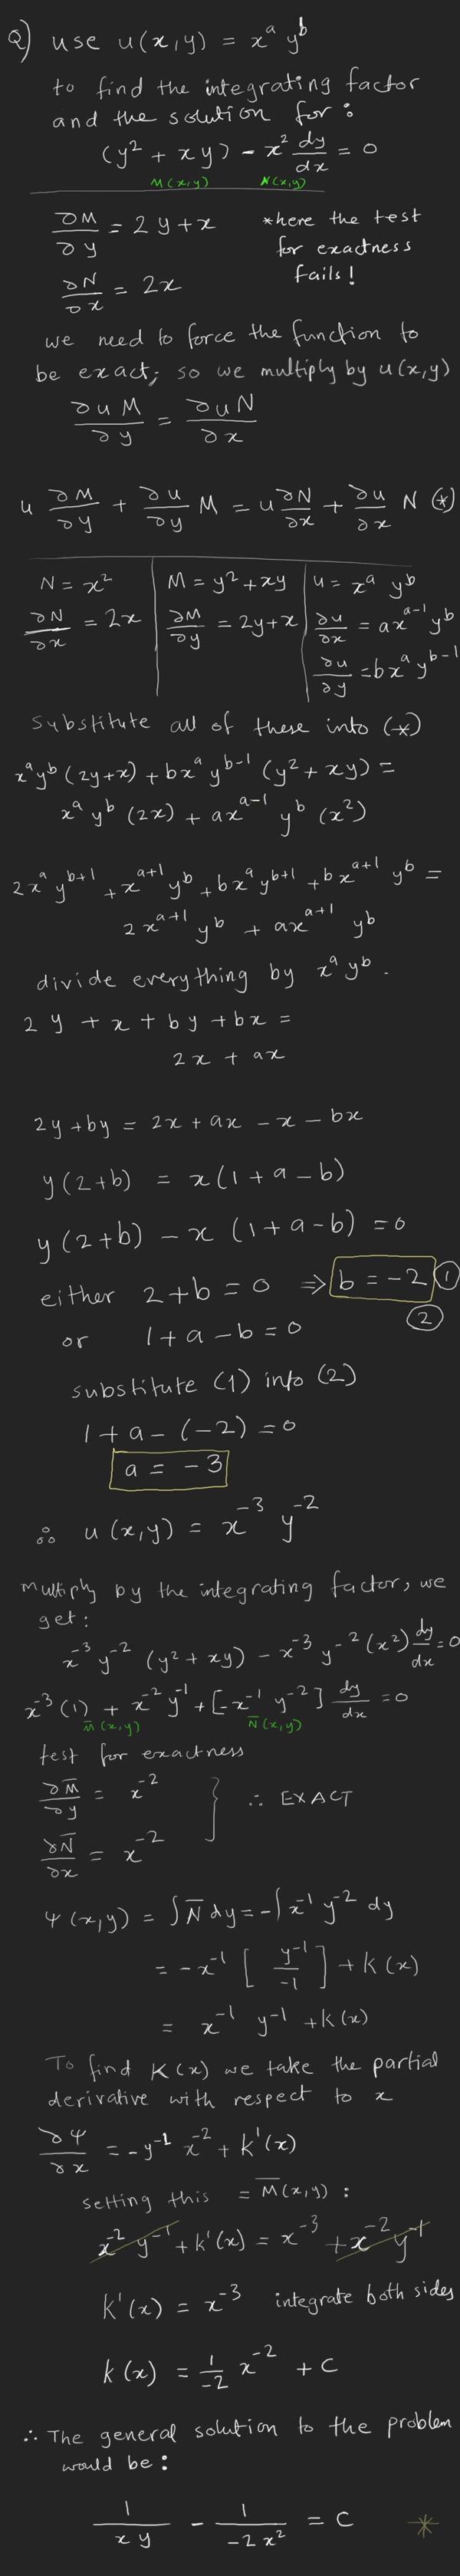 Q) use u(x,y) = x^a y^b
to find the integrating factor
and the solution for:
(y² + xy) - x² dy/dx = 0
M(x,y) N(x,y)
∂M/∂y = 2y + x
*here the test
for exactness
fails!
∂N/∂x = 2x
we need to force the function to
be exact; so we multiply by u(x,y)
∂uM/∂y = ∂uN/∂x
u ∂M/∂y + ∂u/∂y M = u ∂N/∂x + ∂u/∂x N (*)
N = x²
∂N/∂x = 2x
M = y² + xy
∂M/∂y = 2y+x
u = x^a y^b
∂u/∂x = ax^(a-1) y^b
∂u/∂y = bx^a y^(b-1)
Substitute all of these into (*)
x^a y^b (2y+x) + bx^a y^(b-1) (y² + xy) =
x^a y^b (2x) + ax^(a-1) y^b (x²)
2x^a y^(b+1) + x^(a+1) y^b + bx^a y^(b+1) + bx^(a+1) y^b =
2x^(a+1) y^b + ax^(a+1) y^b
divide everything by x^a y^b.
2y + x + by + bx =
2x + ax
2y + by = 2x + ax - x - bx
y(2+b) = x(1+a-b)
y(2+b) - x(1+a-b) = 0
either 2+b = 0 ⇒ b = -2 ①
or 1+a-b = 0 ②
substitute (1) into (2)
1 + a - (-2) = 0
a = -3
∴ u(x,y) = x^-3 y^-2
Multiply by the integrating factor, we
get:
x^-3 y^-2 (y² + xy) - x^-3 y^-2 (x²) dy/dx = 0
x^-3 (1) + x^-2 y^-1 + [-x^-1 y^-2] dy/dx = 0
M̄(x,y) N̄(x,y)
test for exactness
∂M̄/∂y = x^-2
∂N̄/∂x = x^-2
} ∴ EXACT
Ψ(x,y) = ∫N̄ dy = -∫x^-1 y^-2 dy
= -x^-1 [y^-1/-1] + k(x)
= x^-1 y^-1 + k(x)
To find K(x) we take the partial
derivative with respect to x
∂Ψ/∂x = -y^-1 x^-2 + k'(x)
setting this = M̄(x,y):
x^-2 y^-1 + k'(x) = x^-3 + x^-2 y^-1
k'(x) = x^-3 integrate both sides
k(x) = 1/-2 x^-2 + C
∴ The general solution to the problem
would be:
1/xy - 1/-2x² = C *